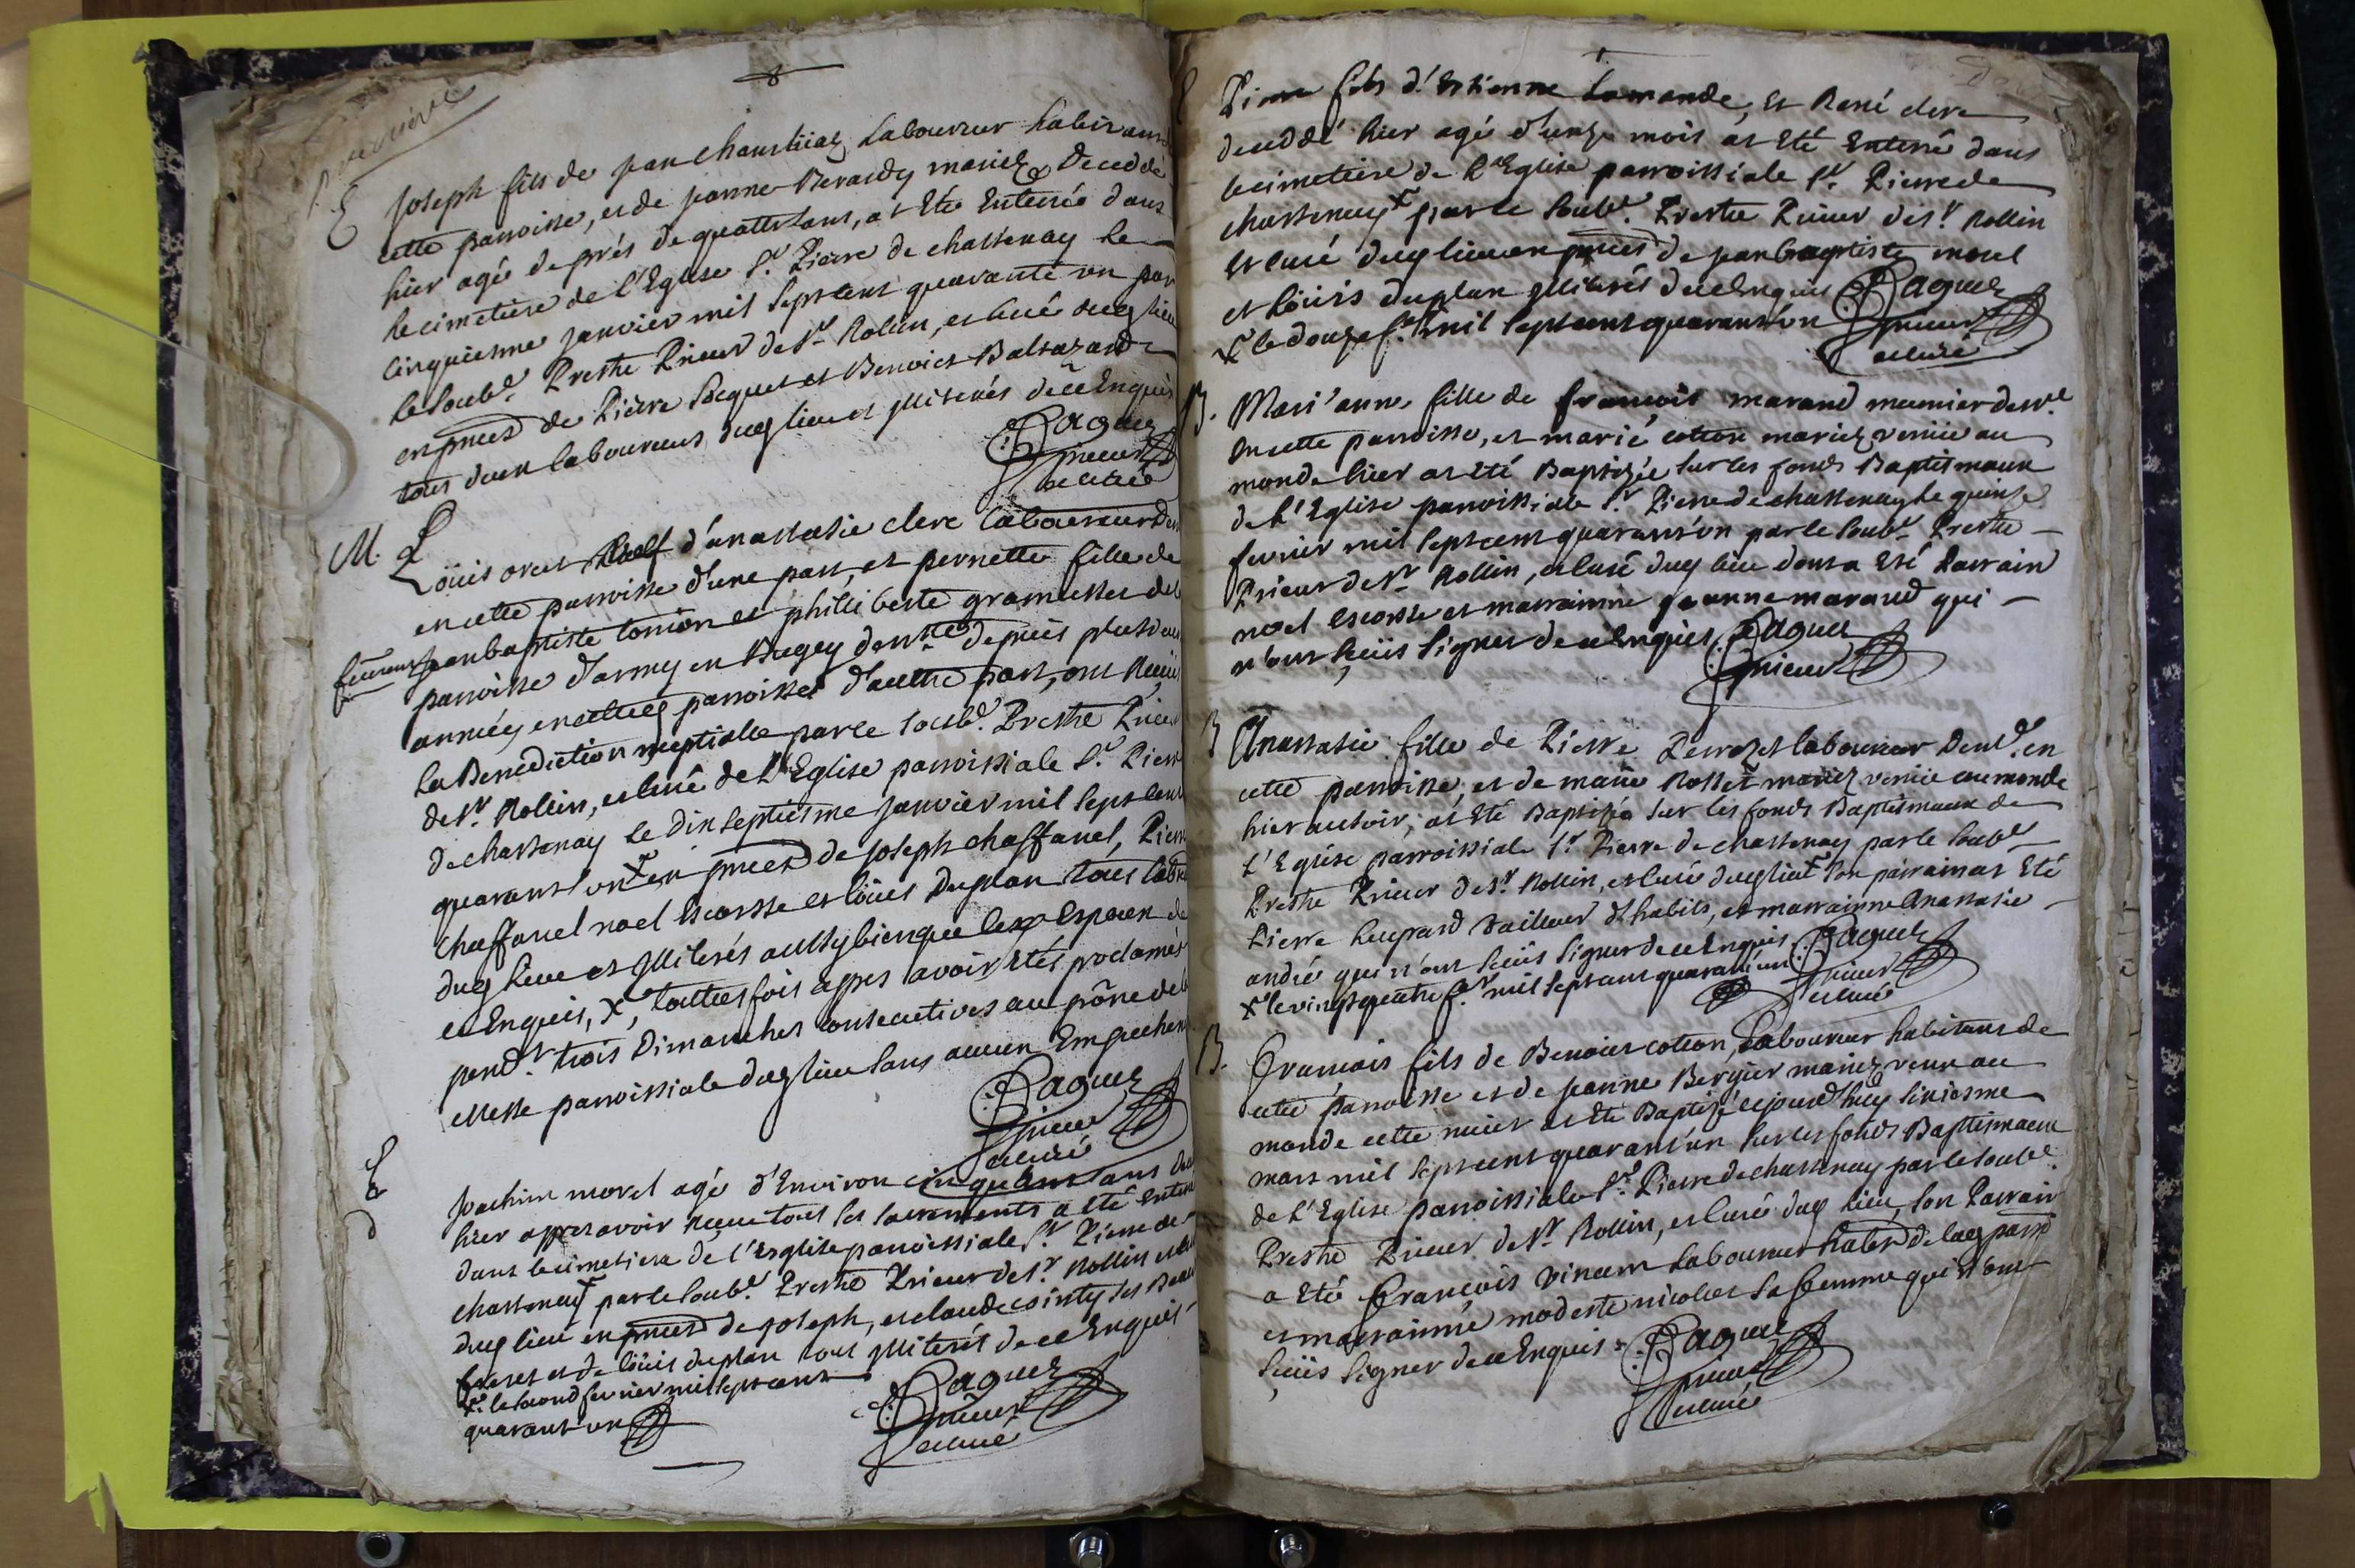 E Joseph fils de jean chaurliiat, Laboureur habitant
cette parroisse, et de jeanne Berardy mariez Deceddé
hier agé de prés de quattre ans, at Eté Enterré dans
le cimetiere de l'Eglise St. Pierre de chastenay le
cinquiesme janvier mil sept cent quarante un par
le soubd. Prestre Prieur de St. Rolin, et curé dug lieu
en pnced de Pierre Pacquet et Benoict Baltazard
tous deux laboureurs dug lieu et illiterés de ce Enquis
Paquez
prieur
et curé
M. Loüis orcet d'anastasie clerc laboureur
en cette parroisse d'une part, et pernette fille de
jean baptiste tonion et philliberte gramusset de la
parroisse d'army en Bugey depuis plusieurs
années en cettes parroisses d'auttre part, ont Receü
la Benediction nuptialle par le soubd. Prestre Prieur
de St. Rollin, et curé de L'Eglise parroissiale St. Pierre
de chastenay le dix septiesme janvier mil sept cent
quarant'un x en pnced de joseph chaffanel, Pierre
chaffanel noel Escosse et loüis Duplan tous
dug lieu et illiterés aussy bien que les Espoux de
ce Enquis, x, touttes fois appres avoir etés proclamés
pend.t trois Dimanches consecutives au prône de la
Messe parroissiale dug lieu sans aucun Empechem
Paquez
prieur
et curé
E Joachim morel agé d'Environ cinquant ans
hier appres avoir Receu tous les sacrements a eté Enterré
dans le cimetiere de l'Esglise parroissiale St. Pierre de
chastenay x par le soubd. Prestre Prieur de St. Rollin et curé
dug lieu en pnced de joseph, et claude cointy ses Beaux
freres et de loüis duplan tous illiterés de ce Enquis
x. le second fevrier mil sept cent
quarant'un
Paquez
prieur
et curé
Pierre fils d'Estienne Lamande, et René clerc
deceddé hier agé d'unze mois at Eté Enterré dans
le cimetiere de L'Eglise parroissiale St. Pierre de
chastenay x par le soubd. Prestre Prieur de St. Rollin
et curé dug lieu en pnced de jean baptiste morel
et loüis duplan illiterés de ce Enquis Paquez
x le douze f.er mil sept cent quarant'un prieur
et curé
B. Mari'anne fille de françois marand meunier
en cette parroisse, et marie cotton mariez venüe au
monde hier at Eté Baptizée sur les fonds Baptismaux
de L'Eglise parroissiale St. Pierre de chastenay le quinze
fevrier mil sept cent quarant'un par le soubd. Prestre
Prieur de St. Rollin, et curé dug lieu dont a Eté Parrain
noel Escosse et marrainne jeanne marand qui
n'ont sçüis signer de ce Enquis Paquez
prieur
B Anastasie fille de Pierre Perrozet laboureur en
cette parroisse, et de marie Rosset mariez venüe au monde
hier au soir, at Eté Baptizée sur les fonds Baptismaux de
L'Eglise parroissiale St. Pierre de chastenay par le soubd
Prestre Prieur de St. Rollin, et curé dug lieu x son parrain at Eté
Pierre tailleur d'habits, et marrainne Anastasie
andré qui n'ont sçüis signer de ce Enquis Paquez
x le vingt quatre f.er mil sept cent quarant'un prieur
et curé
B. François fils de Benoict cotton, Laboureur habitant de
cette parroisse et de jeanne Bergier mariez venu au
monde cette nuict at Eté Baptizé cejourd'huy sixiesme
mars mil sept cent quarant'un sur les fonds Baptismaux
de L'Eglise parroissiale St. Pierre de chastenay par le soubd
Prestre Prieur de St. Rollin, et curé dug lieu, son Parrain
a Eté François vincent Laboureur habt de lad parr
et marrainne modeste nicolas sa femme qui n'ont
sçüis signer de ce Enquis Paquez
prieur
et curé